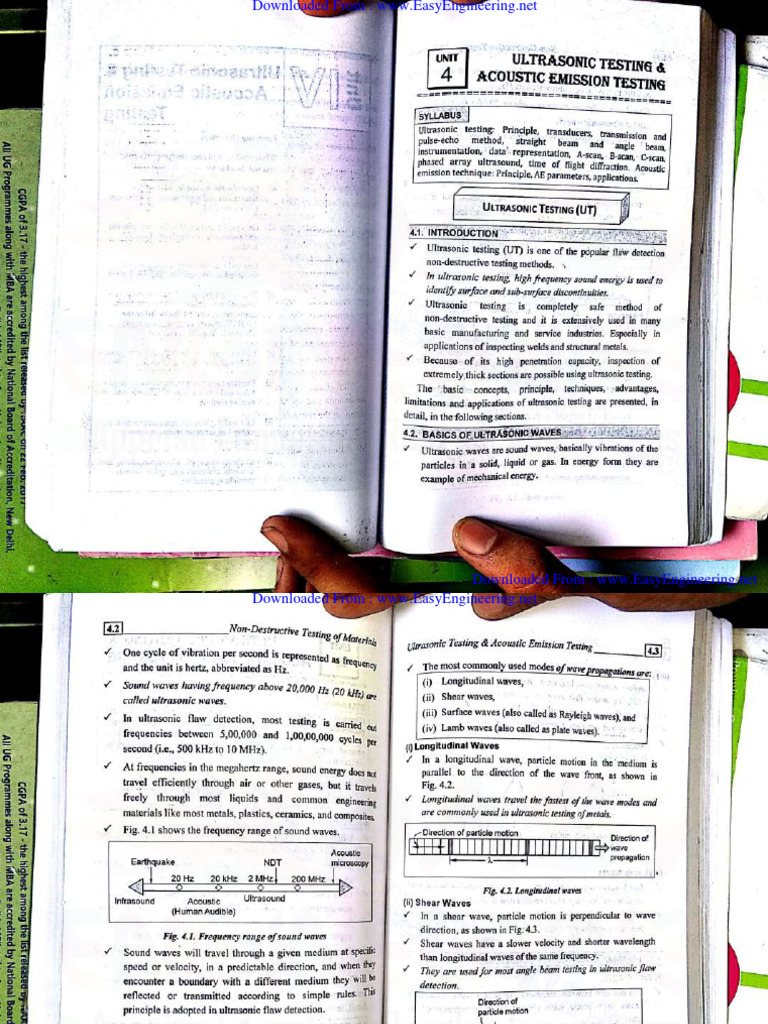 Downloaded From : www.EasyEngineering.net
UNIT
4
ULTRASONIC TESTING &
ACOUSTIC EMISSION TESTING
SYLLABUS
Ultrasonic testing: Principle, transducers, transmission and
pulse-echo method, straight beam and angle beam,
instrumentation, data representation, A-scan, B-scan, C-scan,
phased array ultrasound, time of flight diffraction. Acoustic
emission technique: Principle, AE parameters, applications.
ULTRASONIC TESTING (UT)
4.1. INTRODUCTION
✓ Ultrasonic testing (UT) is one of the popular flaw detection
non-destructive testing methods.
✓ In ultrasonic testing, high frequency sound energy is used to
identify surface and sub-surface discontinuities.
✓ Ultrasonic testing is completely safe method of
non-destructive testing and it is extensively used in many
basic manufacturing and service industries. Especially in
applications of inspecting welds and structural metals.
✓ Because of its high penetration capacity, inspection of
extremely thick sections are possible using ultrasonic testing.
The basic concepts, principle, techniques, advantages,
limitations and applications of ultrasonic testing are presented, in
detail, in the following sections.
4.2. BASICS OF ULTRASONIC WAVES
✓ Ultrasonic waves are sound waves, basically vibrations of the
particles in a solid, liquid or gas. In energy form they are
example of mechanical energy.
CGPA of 3.17 - the highest among the list released by
All UG Programmes along with MBA are accredited by National Board of Accreditation, New Delhi.
Downloaded From : www.EasyEngineering.net
Downloaded From : www.EasyEngineering.net
4.2
Non-Destructive Testing of Materials
✓ One cycle of vibration per second is represented as frequency
and the unit is hertz, abbreviated as Hz.
✓ Sound waves having frequency above 20,000 Hz (20 kHz) are
called ultrasonic waves.
✓ In ultrasonic flaw detection, most testing is carried out
frequencies between 5,00,000 and 1,00,00,000 cycles per
second (i.e., 500 kHz to 10 MHz).
✓ At frequencies in the megahertz range, sound energy does not
travel efficiently through air or other gases, but it travels
freely through most liquids and common engineering
materials like most metals, plastics, ceramics, and composites.
✓ Fig. 4.1 shows the frequency range of sound waves.
Earthquake
NDT
Acoustic
microscopy
20 Hz
20 kHz
2 MHz
200 MHz
Infrasound
Acoustic
(Human Audible)
Ultrasound
Fig. 4.1. Frequency range of sound waves
✓ Sound waves will travel through a given medium at specific
speed or velocity, in a predictable direction, and when they
encounter a boundary with a different medium they will be
reflected or transmitted according to simple rules. This
principle is adopted in ultrasonic flaw detection.
Ultrasonic Testing & Acoustic Emission Testing
4.3
✓ The most commonly used modes of wave propagations are:
(i) Longitudinal waves,
(ii) Shear waves,
(iii) Surface waves (also called as Rayleigh waves), and
(iv) Lamb waves (also called as plate waves).
(i) Longitudinal Waves
✓ In a longitudinal wave, particle motion in the medium is
parallel to the direction of the wave front, as shown in
Fig. 4.2.
✓ Longitudinal waves travel the fastest of the wave modes and
are commonly used in ultrasonic testing of metals.
Direction of particle motion
Direction of
wave
propagation
λ
Fig. 4.2. Longitudinal waves
(ii) Shear Waves
✓ In a shear wave, particle motion is perpendicular to wave
direction, as shown in Fig. 4.3.
✓ Shear waves have a slower velocity and shorter wavelength
than longitudinal waves of the same frequency.
✓ They are used for most angle beam testing in ultrasonic flaw
detection.
Direction of
particle motion
CGPA of 3.17 - the highest among the list released by
All UG Programmes along with MBA are accredited by National Board